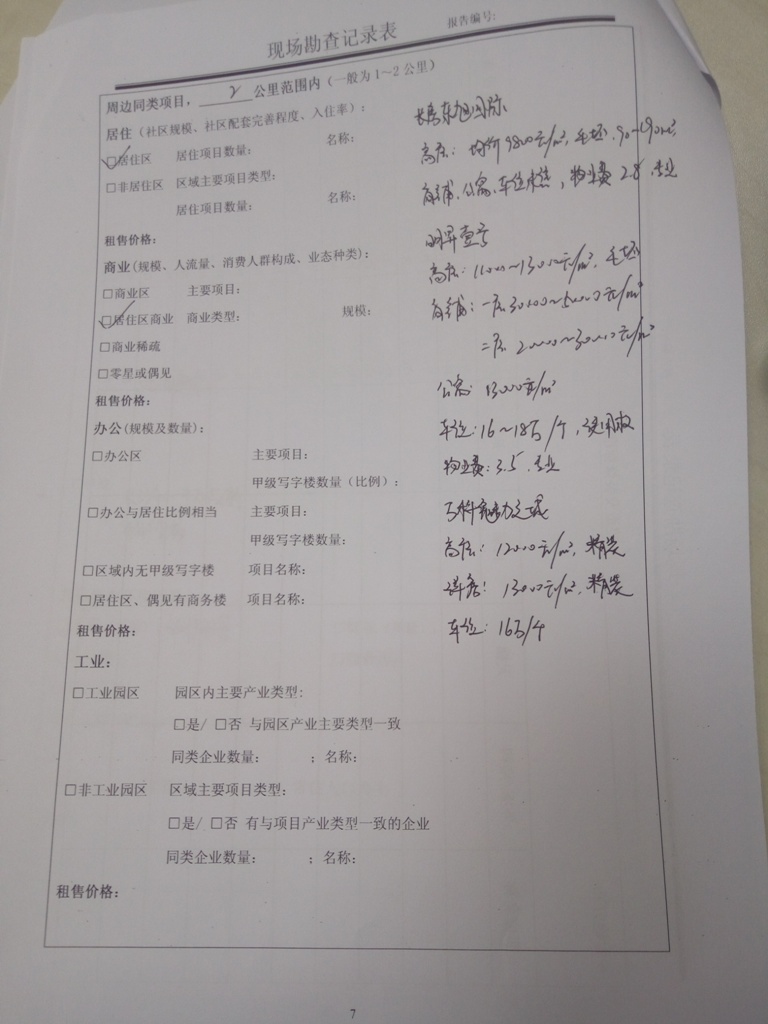 现场勘查记录表
报告编号:
周边同类项目，2公里范围内（一般为1～2公里）
居住（社区规模、社区配套完善程度、入住率）:
☑居住区 居住项目数量: 名称:
□非居住区 区域主要项目类型:
居住项目数量: 名称:
租售价格:
商业(规模、人流量、消费人群构成、业态种类):
□商业区 主要项目:
☑居住区商业 商业类型: 规模:
□商业稀疏
□零星或偶见
租售价格:
办公(规模及数量):
□办公区 主要项目:
甲级写字楼数量（比例）:
□办公与居住比例相当 主要项目:
甲级写字楼数量:
□区域内无甲级写字楼 项目名称:
□居住区、偶见有商务楼 项目名称:
租售价格:
工业:
□工业园区 园区内主要产业类型:
□是/ □否 与园区产业主要类型一致
同类企业数量: ；名称:
□非工业园区 区域主要项目类型:
□是/ □否 有与项目产业类型一致的企业
同类企业数量: ；名称:
租售价格:
东旭国际
高层: 均价9800元/m², 毛坯, 90~190m²,
商铺、公寓、车位未售, 物业费 2.8
明昇壹号
高层: 11000~13000元/m², 毛坯
商铺: 一层30000~50000元/m²
二层 20000~30000元/m²
公寓: 13000元/m²
车位: 16~18万/个, 使用权
物业费: 3.5
万科魅力之城
高层: 12000元/m², 精装
洋房: 13000元/m², 精装
车位: 16万/个
7